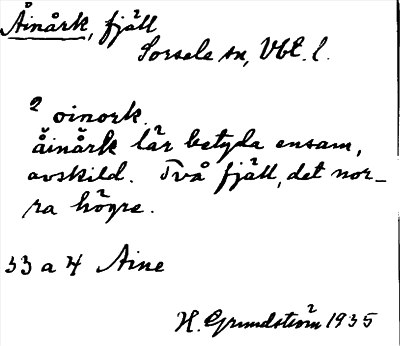 Åinårk, fjäll
Sorsele sn, Vbt. l.
² oinork.
åinårk lär betyda ensam,
avskild. Två fjäll, det nor-
ra högre.
33 a 4 Aine
H. Grundström 1935